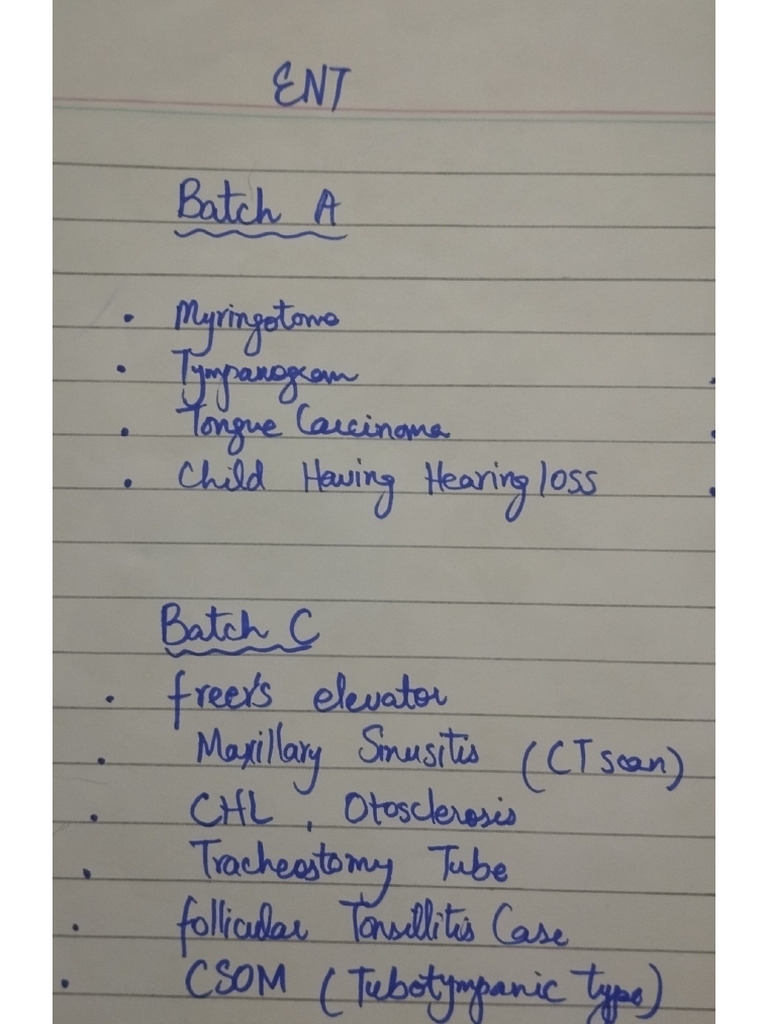 ENT
Batch A
• Myringotome
• Tympanogram
• Tongue Carcinoma
• Child Having Hearing loss
Batch C
• freer's elevator
• Maxillary Sinusitis (CT scan)
• CHL, Otosclerosis
• Tracheostomy Tube
• follicular Tonsillitis Case
• CSOM (Tubotympanic type)